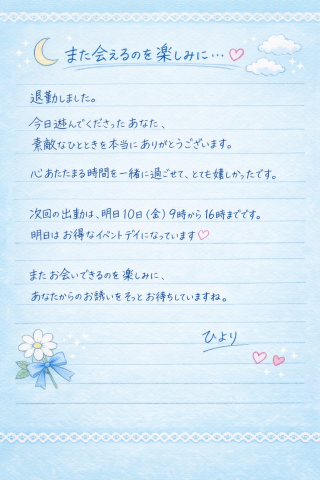 また会えるのを楽しみに…♡
退勤しました。
今日遊んでくださったあなた、
素敵なひとときを本当にありがとうございます。
心あたたまる時間を一緒に過ごせて、とても嬉しかったです。
次回の出勤は、明日10日(金)9時から16時までです。
明日はお得なイベントデイになっています♡
またお会いできるのを楽しみに、
あなたからのお誘いをそっとお待ちしていますね。
ひより